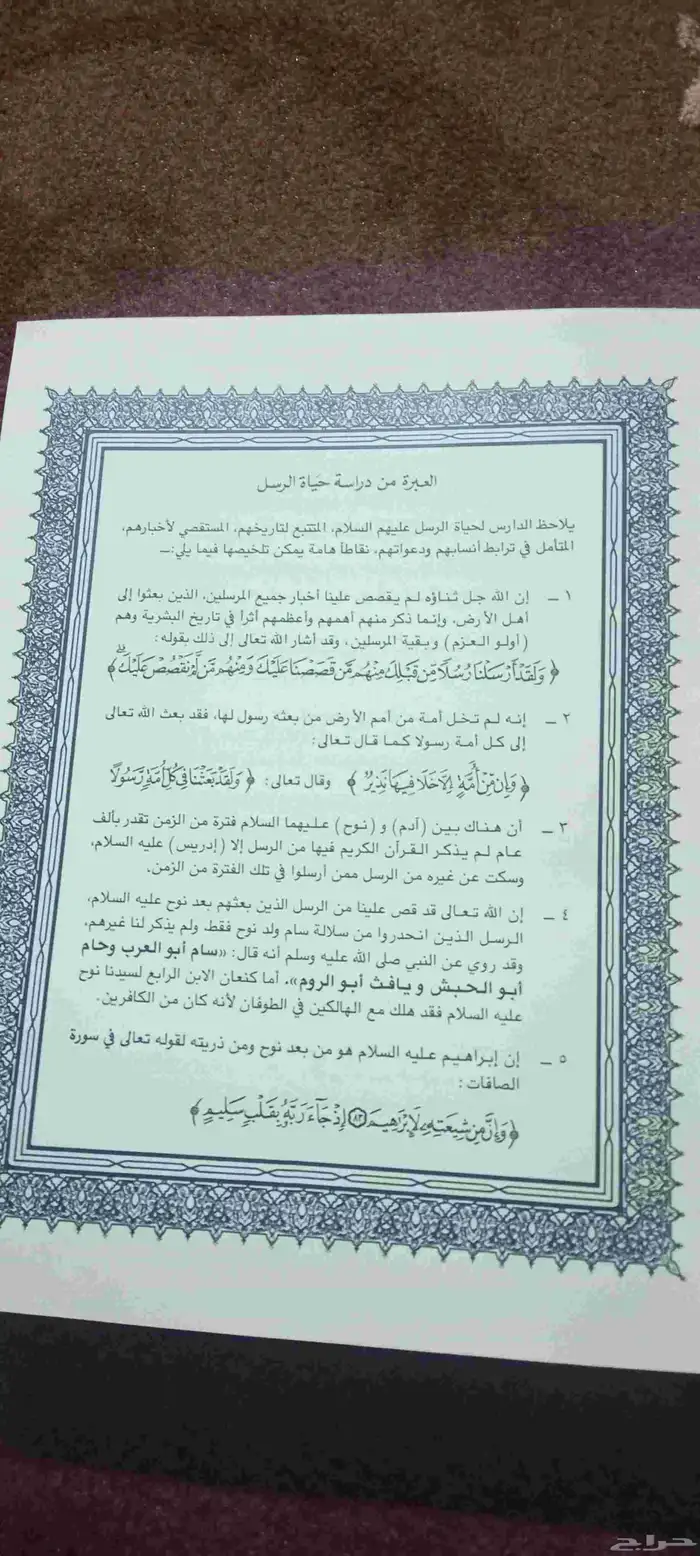 العبرة من دراسة حياة الرسل
يلاحظ الدارس لحياة الرسل عليهم السلام، المتتبع لتاريخهم، المستقصي لأخبارهم،
المتأمل في ترابط أنسابهم ودعواتهم، نقاطاً هامة يمكن تلخيصها فيما يلي:ـ
١ ـ إن الله جل ثناؤه لم يقصص علينا أخبار جميع المرسلين، الذين بعثوا إلى
أهل الأرض، وإنما ذكر منهم أهمهم وأعظمهم أثراً في تاريخ البشرية وهم
(أولو العزم) وبقية المرسلين، وقد أشار الله تعالى إلى ذلك بقوله:
﴿ وَلَقَدْ أَرْسَلْنَا رُسُلًا مِّن قَبْلِكَ مِنْهُم مَّن قَصَصْنَا عَلَيْكَ وَمِنْهُم مَّن لَّمْ نَقْصُصْ عَلَيْكَ ﴾
٢ ـ إنه لم تخل أمة من أمم الأرض من بعثه رسول لها، فقد بعث الله تعالى
إلى كل أمة رسولا كما قال تعالى:
﴿ وَإِن مِّنْ أُمَّةٍ إِلَّا خَلَا فِيهَا نَذِيرٌ ﴾ وقال تعالى: ﴿ وَلَقَدْ بَعَثْنَا فِي كُلِّ أُمَّةٍ رَّسُولًا
٣ ـ أن هناك بين (آدم) و(نوح) عليهما السلام فترة من الزمن تقدر بألف
عام لم يذكر القرآن الكريم فيها من الرسل إلا (إدريس) عليه السلام،
وسكت عن غيره من الرسل ممن أرسلوا في تلك الفترة من الزمن.
٤ ـ إن الله تعالى قد قص علينا من الرسل الذين بعثهم بعد نوح عليه السلام،
الرسل الذين انحدروا من سلالة سام ولد نوح فقط، ولم يذكر لنا غيرهم،
وقد روي عن النبي صلى الله عليه وسلم أنه قال: «سام أبو العرب وحام
أبو الحبش ويافث أبو الروم». أما كنعان الابن الرابع لسيدنا نوح
عليه السلام فقد هلك مع الهالكين في الطوفان لأنه كان من الكافرين.
٥ ـ إن إبراهيم عليه السلام هو من بعد نوح ومن ذريته لقوله تعالى في سورة
الصافات:
﴿ وَإِنَّ مِن شِيعَتِهِ لَإِبْرَاهِيمَ ٨٣ إِذْ جَاءَ رَبَّهُ بِقَلْبٍ سَلِيمٍ ﴾
حراج